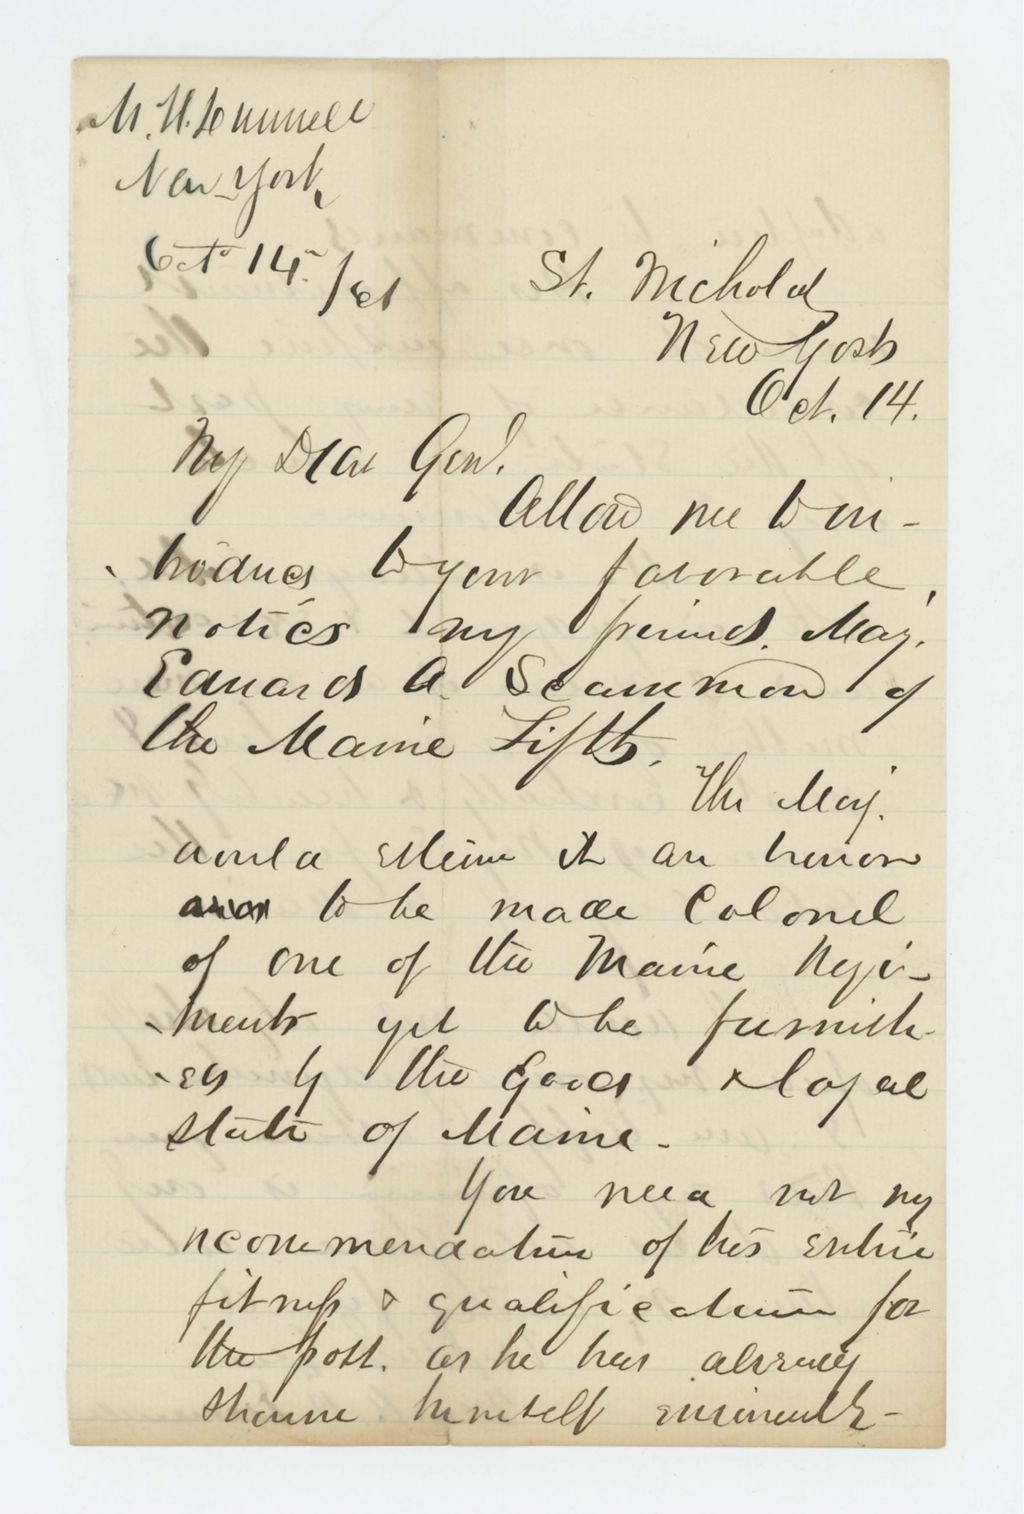 M. H. Dunnell
New York
Octo 14th /61
St. Nicholas
New York
Oct. 14.
My Dear Gen'l.
Allow me to in-
troduce to your favorable
notice my friend. Maj.
Edward A. Scammon of
the Maine Fifth.
The Maj.
would esteem it an honor
to be made Colonel
of one of the Maine Regi-
ments yet to be furnish-
ed by the good & loyal
state of Maine.
You need not my
recommendation of his entire
fitness & qualification for
the post. as he has already
shown himself eminently